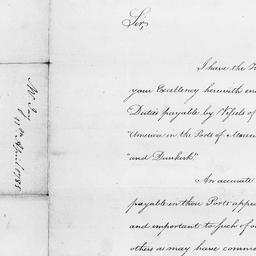 Sir,
I have the
your Excellency herewith
Duties payable by Vessels of
"America in the Ports of
"and Dunkirk"
An accurate
payable in those Ports
and important to such of
others as may have
Mr. Jay
April 1788